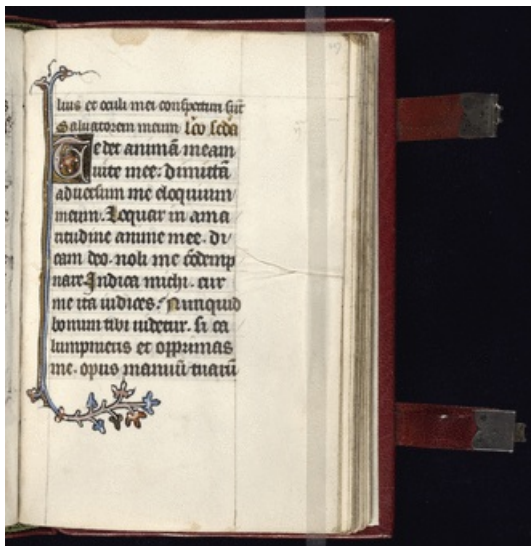 lius et oculi mei conspecturi sūt
Saluatorem meum lc̄o sc̄da
Tedet animā meam
uite mee. dimittā
aduersum me eloquium
meum. Loquar in ama
ritudine anime mee. di
cam deo. noli me cōdemp
nare. Indica michi. cur
me ita iudices. Nunquid
bonum tibi uidetur. si ca
lumpnieris et opprimas
me. opus manuū tuarū